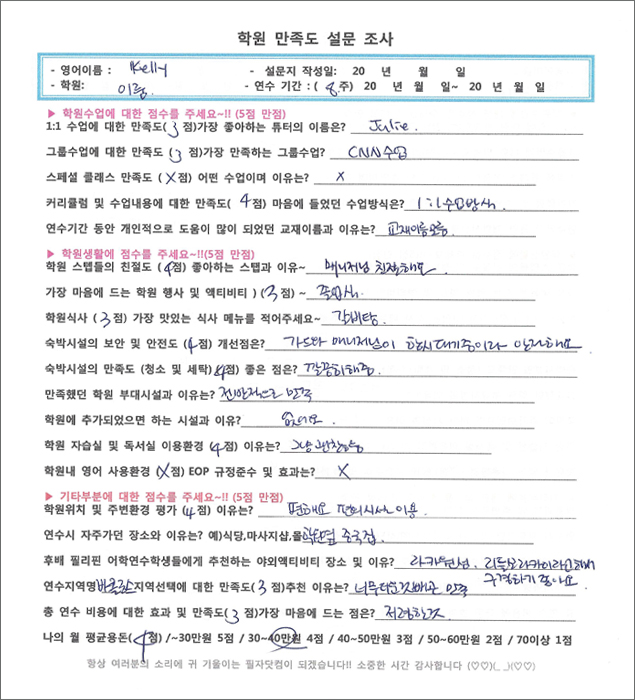 학원 만족도 설문 조사
- 영어이름 : Kelly - 설문지 작성일: 20 년 월 일
- 학원: 이룸. - 연수 기간 : ( 8.주) 20 년 월 일~ 20 년 월 일
▶ 학원수업에 대한 점수를 주세요~!! (5점 만점)
1:1 수업에 대한 만족도( 3 점)가장 좋아하는 튜터의 이름은? Julie.
그룹수업에 대한 만족도 ( 3 점)가장 만족하는 그룹수업? CNN수업
스페셜 클래스 만족도 ( X 점) 어떤 수업이며 이유는? X
커리큘럼 및 수업내용에 대한 만족도( 4 점) 마음에 들었던 수업방식은? 1:1수업방식.
연수기간 동안 개인적으로 도움이 많이 되었던 교재이름과 이유는? 교재이름모름.
▶ 학원생활에 점수를 주세요~!!(5점 만점)
학원 스텝들의 친절도 ( 4점) 좋아하는 스탭과 이유~ 매니저님 친절해요
가장 마음에 드는 학원 행사 및 액티비티 ) ( 3점 ) ~ 졸업식.
학원식사 ( 3점) 가장 맛있는 식사 메뉴를 적어주세요~ 갈비탕
숙박시설의 보안 및 안전도 ( 4점) 개선점은? 가드와 매니저님이 항시대기중이라 안전해요
숙박시설의 만족도 (청소 및 세탁)( 4점) 좋은 점은? 깔끔히해줌.
만족했던 학원 부대시설과 이유는? 전반적으로 만족
학원에 추가되었으면 하는 시설과 이유? 없어요.
학원 자습실 및 독서실 이용환경 ( 4점) 이유는? 그냥 괜찮음
학원내 영어 사용환경 ( X 점) EOP 규정준수 및 효과는? X
▶ 기타부분에 대한 점수를 주세요~!! (5점 만점)
학원위치 및 주변환경 평가 ( 4점 ) 이유는? 편해요 편의시설 이용.
연수시 자주가던 장소와 이유는? 예)식당,마사지샵,몰 학원옆 중국집
후배 필리핀 어학연수학생들에게 추천하는 야외액티비티 장소 및 이유? 라카원섬. 리틀보라카이라고해서
구경하기 좋아요
연수지역명 바콜로드 지역선택에 대한 만족도 ( 3 점)추천 이유는? 만족
총 연수 비용에 대한 효과 및 만족도( 3 점)가장 마음에 드는 점은? 저렴한것
나의 월 평균용돈( 4점) /~30만원 5점 / 30~40만원 4점 / 40~50만원 3점 / 50~60만원 2점 / 70이상 1점
항상 여러분의 소리에 귀 기울이는 필자닷컴이 되겠습니다!! 소중한 시간 감사합니다 (♡♡)(_ _)(♡♡)